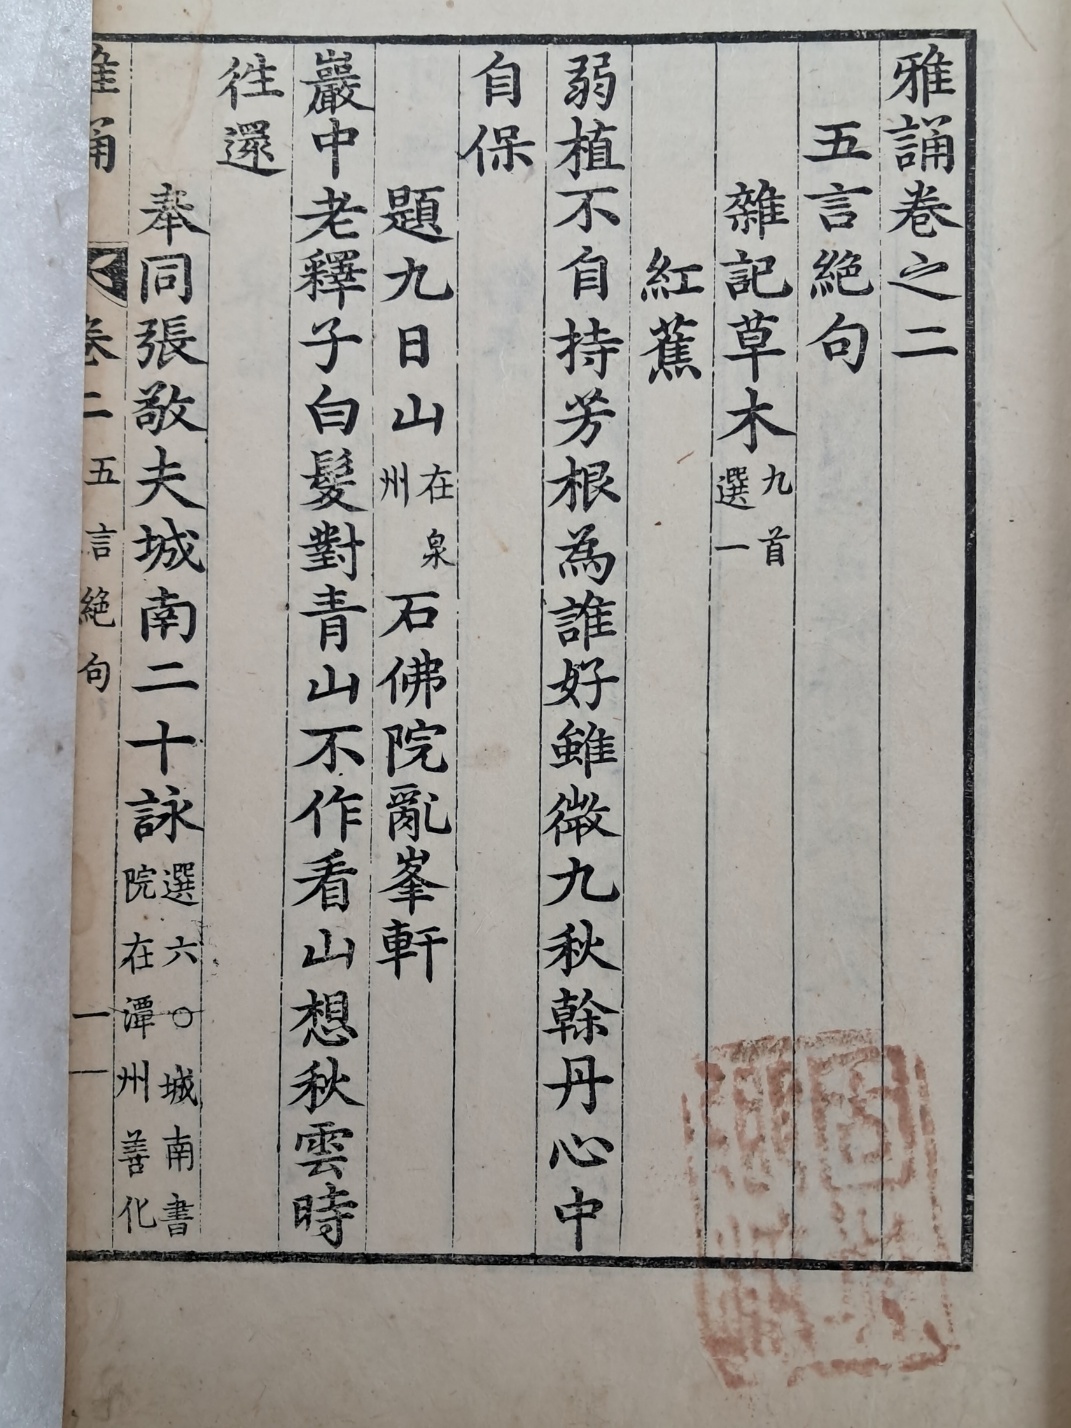 雅誦卷之二
五言絶句
雜記草木九首選一
紅蕉
弱植不自持芳根為誰好雖微九秋幹丹心中
自保
題九日山在泉州石佛院亂峯軒
巖中老釋子白髮對青山不作看山想秋雲時
徃還
奉同張敬夫城南二十詠選六○城南書院在潭州善化
雅誦 卷二 五言絶句 一